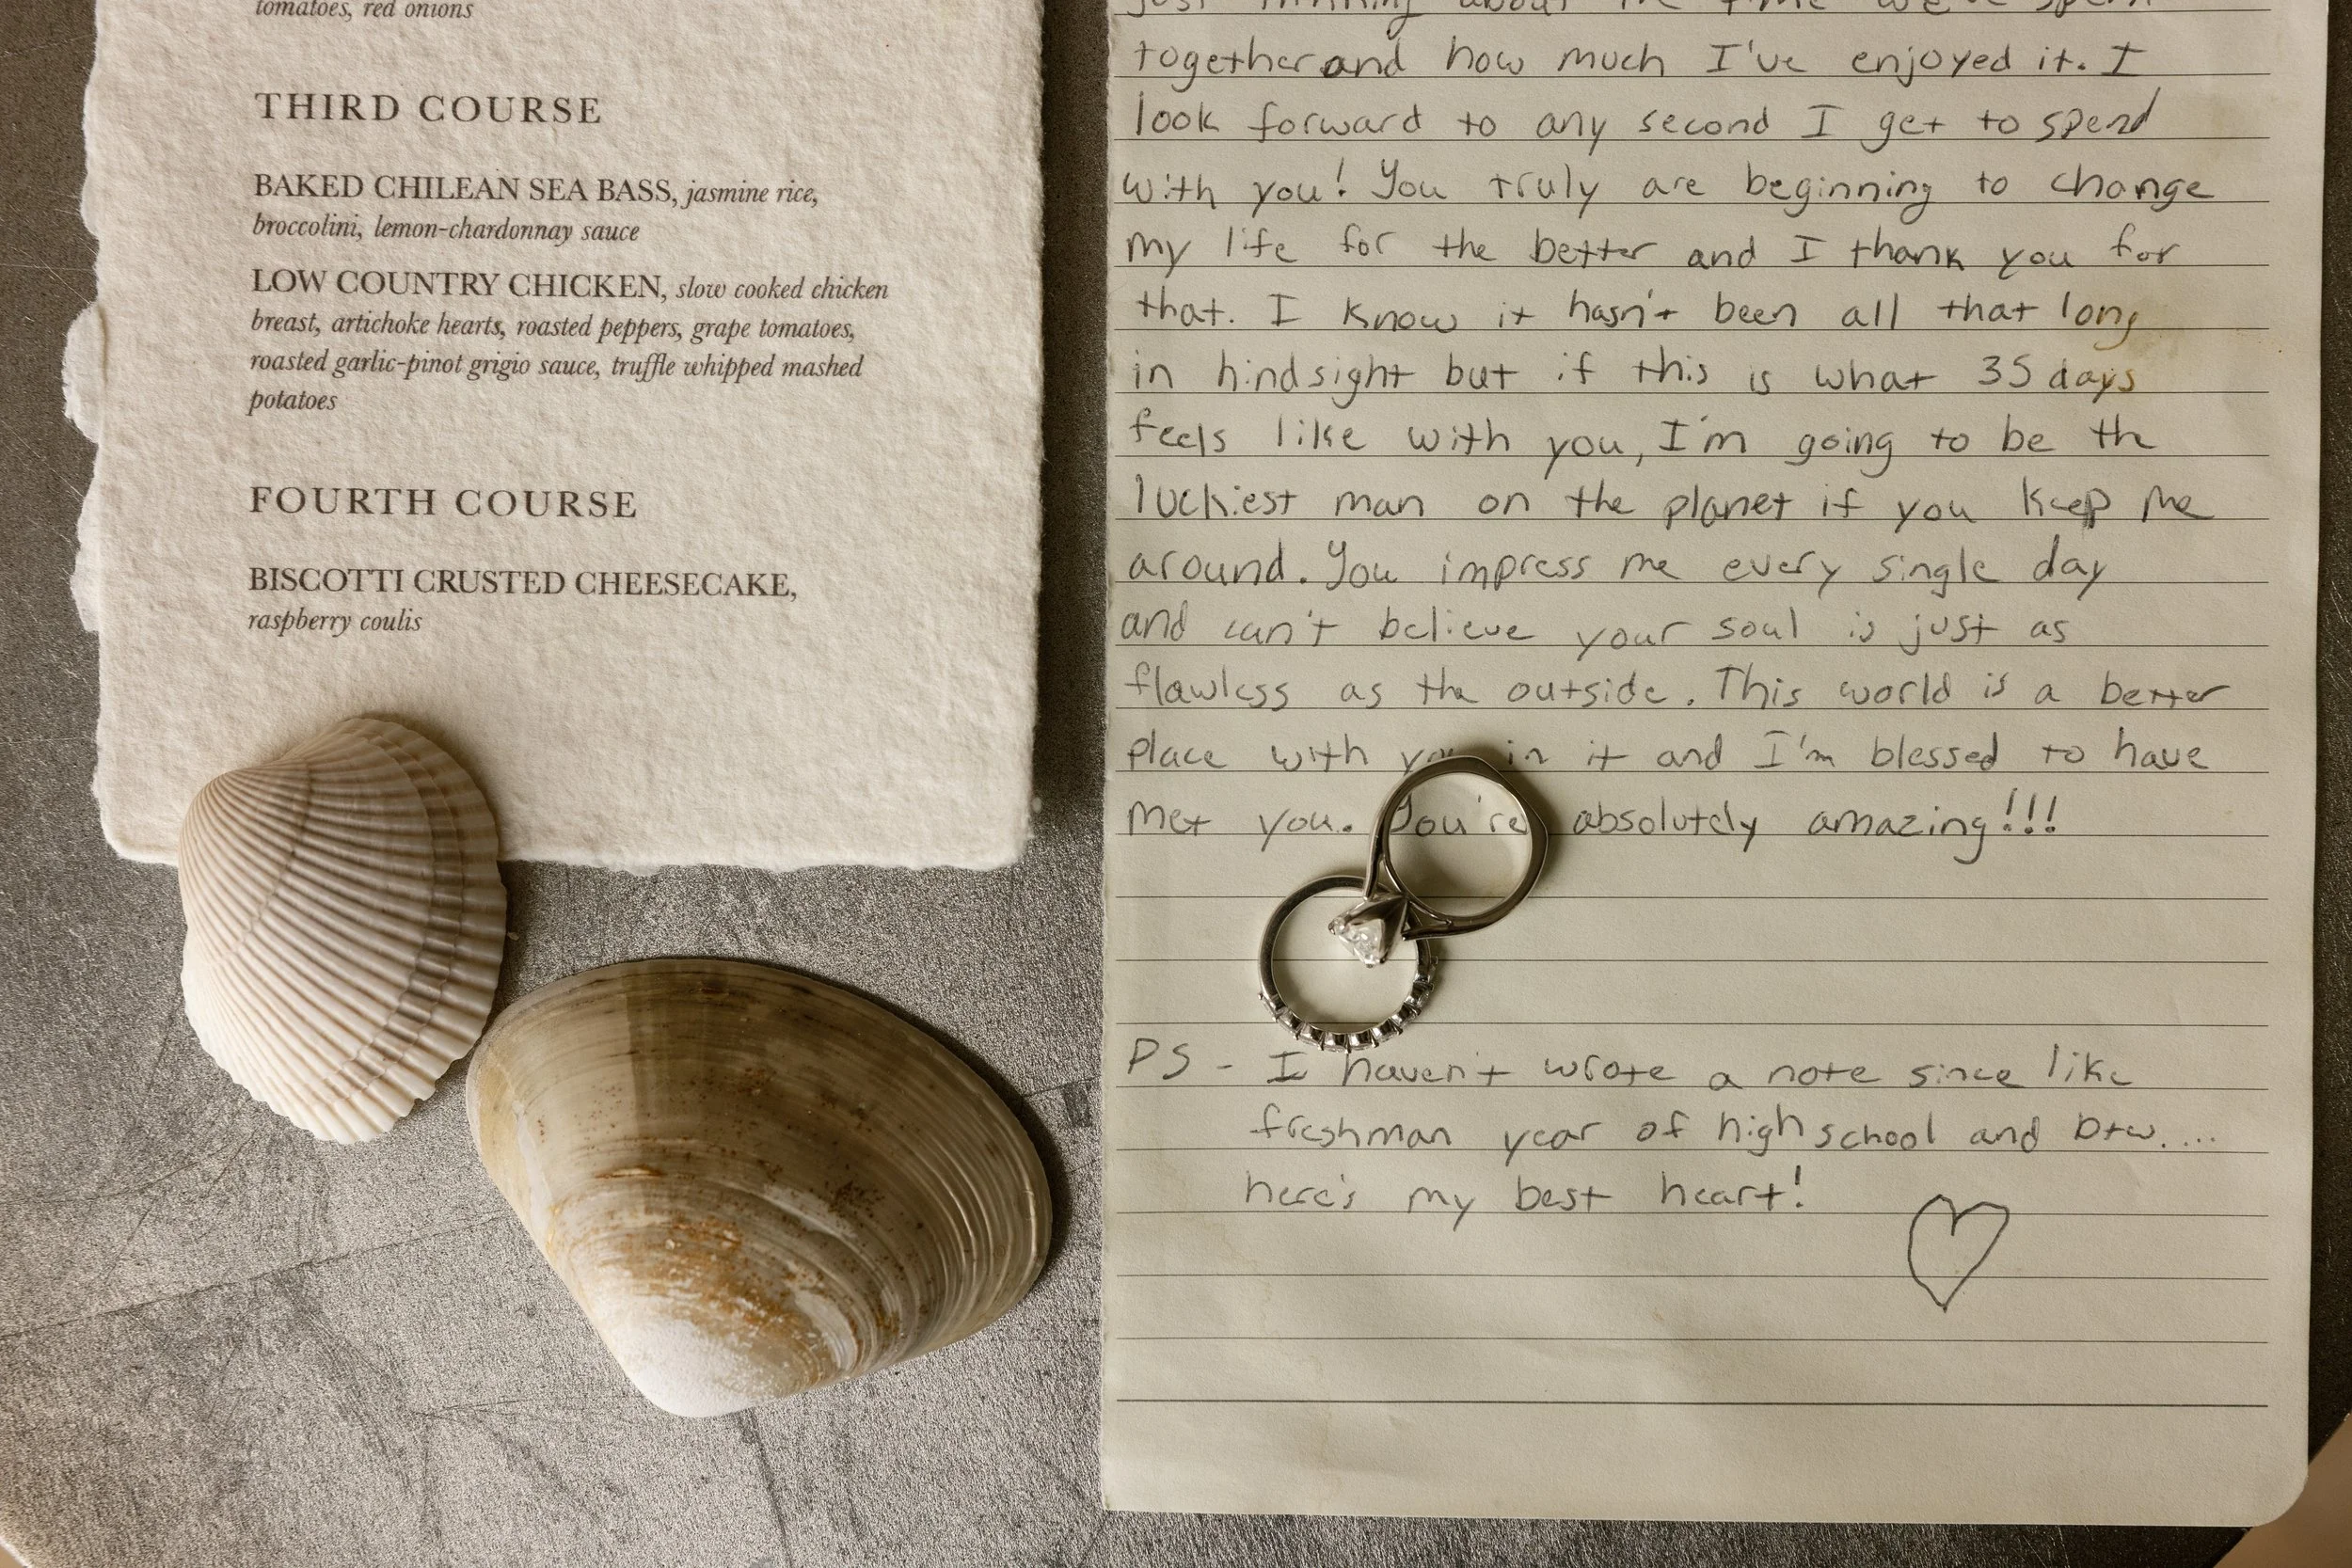 tomatoes, red onions
THIRD COURSE
BAKED CHILEAN SEA BASS, jasmine rice,
broccolini, lemon-chardonnay sauce
LOW COUNTRY CHICKEN, slow cooked chicken
breast, artichoke hearts, roasted peppers, grape tomatoes,
roasted garlic-pinot grigio sauce, truffle whipped mashed
potatoes
FOURTH COURSE
BISCOTTI CRUSTED CHEESECAKE,
raspberry coulis
just thinking about the time we've spent
together and how much I've enjoyed it. I
look forward to any second I get to spend
with you! You truly are beginning to change
my life for the better and I thank you for
that. I know it hasn't been all that long
in hindsight but if this is what 35 days
feels like with you, I'm going to be the
luckiest man on the planet if you keep me
around. You impress me every single day
and can't believe your soul is just as
flawless as the outside. This world is a better
place with you in it and I'm blessed to have
met you. You're absolutely amazing!!!
PS - I haven't wrote a note since like
freshman year of high school and btw....
here's my best heart!